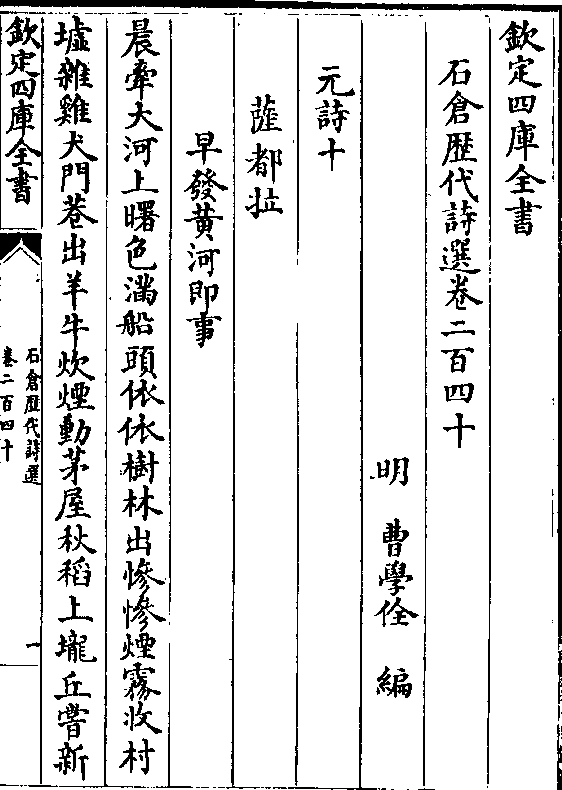 欽定四庫全書
石倉歴代詩選卷二百四十
明 曹學佺 編
元詩十
薩都拉
早發黄河即事
晨牽大河上曙色滿船頭依依樹林出慘慘煙霧收村
墟雜雞犬門巷出羊牛炊煙動茅屋秋稻上壠丘嘗新
欽定四庫全書
石倉歴代詩選
卷二百四十
一